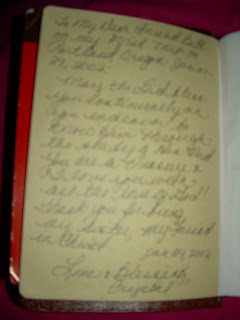 To My Dear Friend
on my First Trip to
Portland Oregon Jan.
29, 2002:
May the Lord bless
you continually as
you endeavor to
know Him through
the study of His Word
You are a treasure &
I love you with
all the love of God!
Thank you for being
my sister, my friend
in Christ.
Jan 29 2002
Love & Blessings,